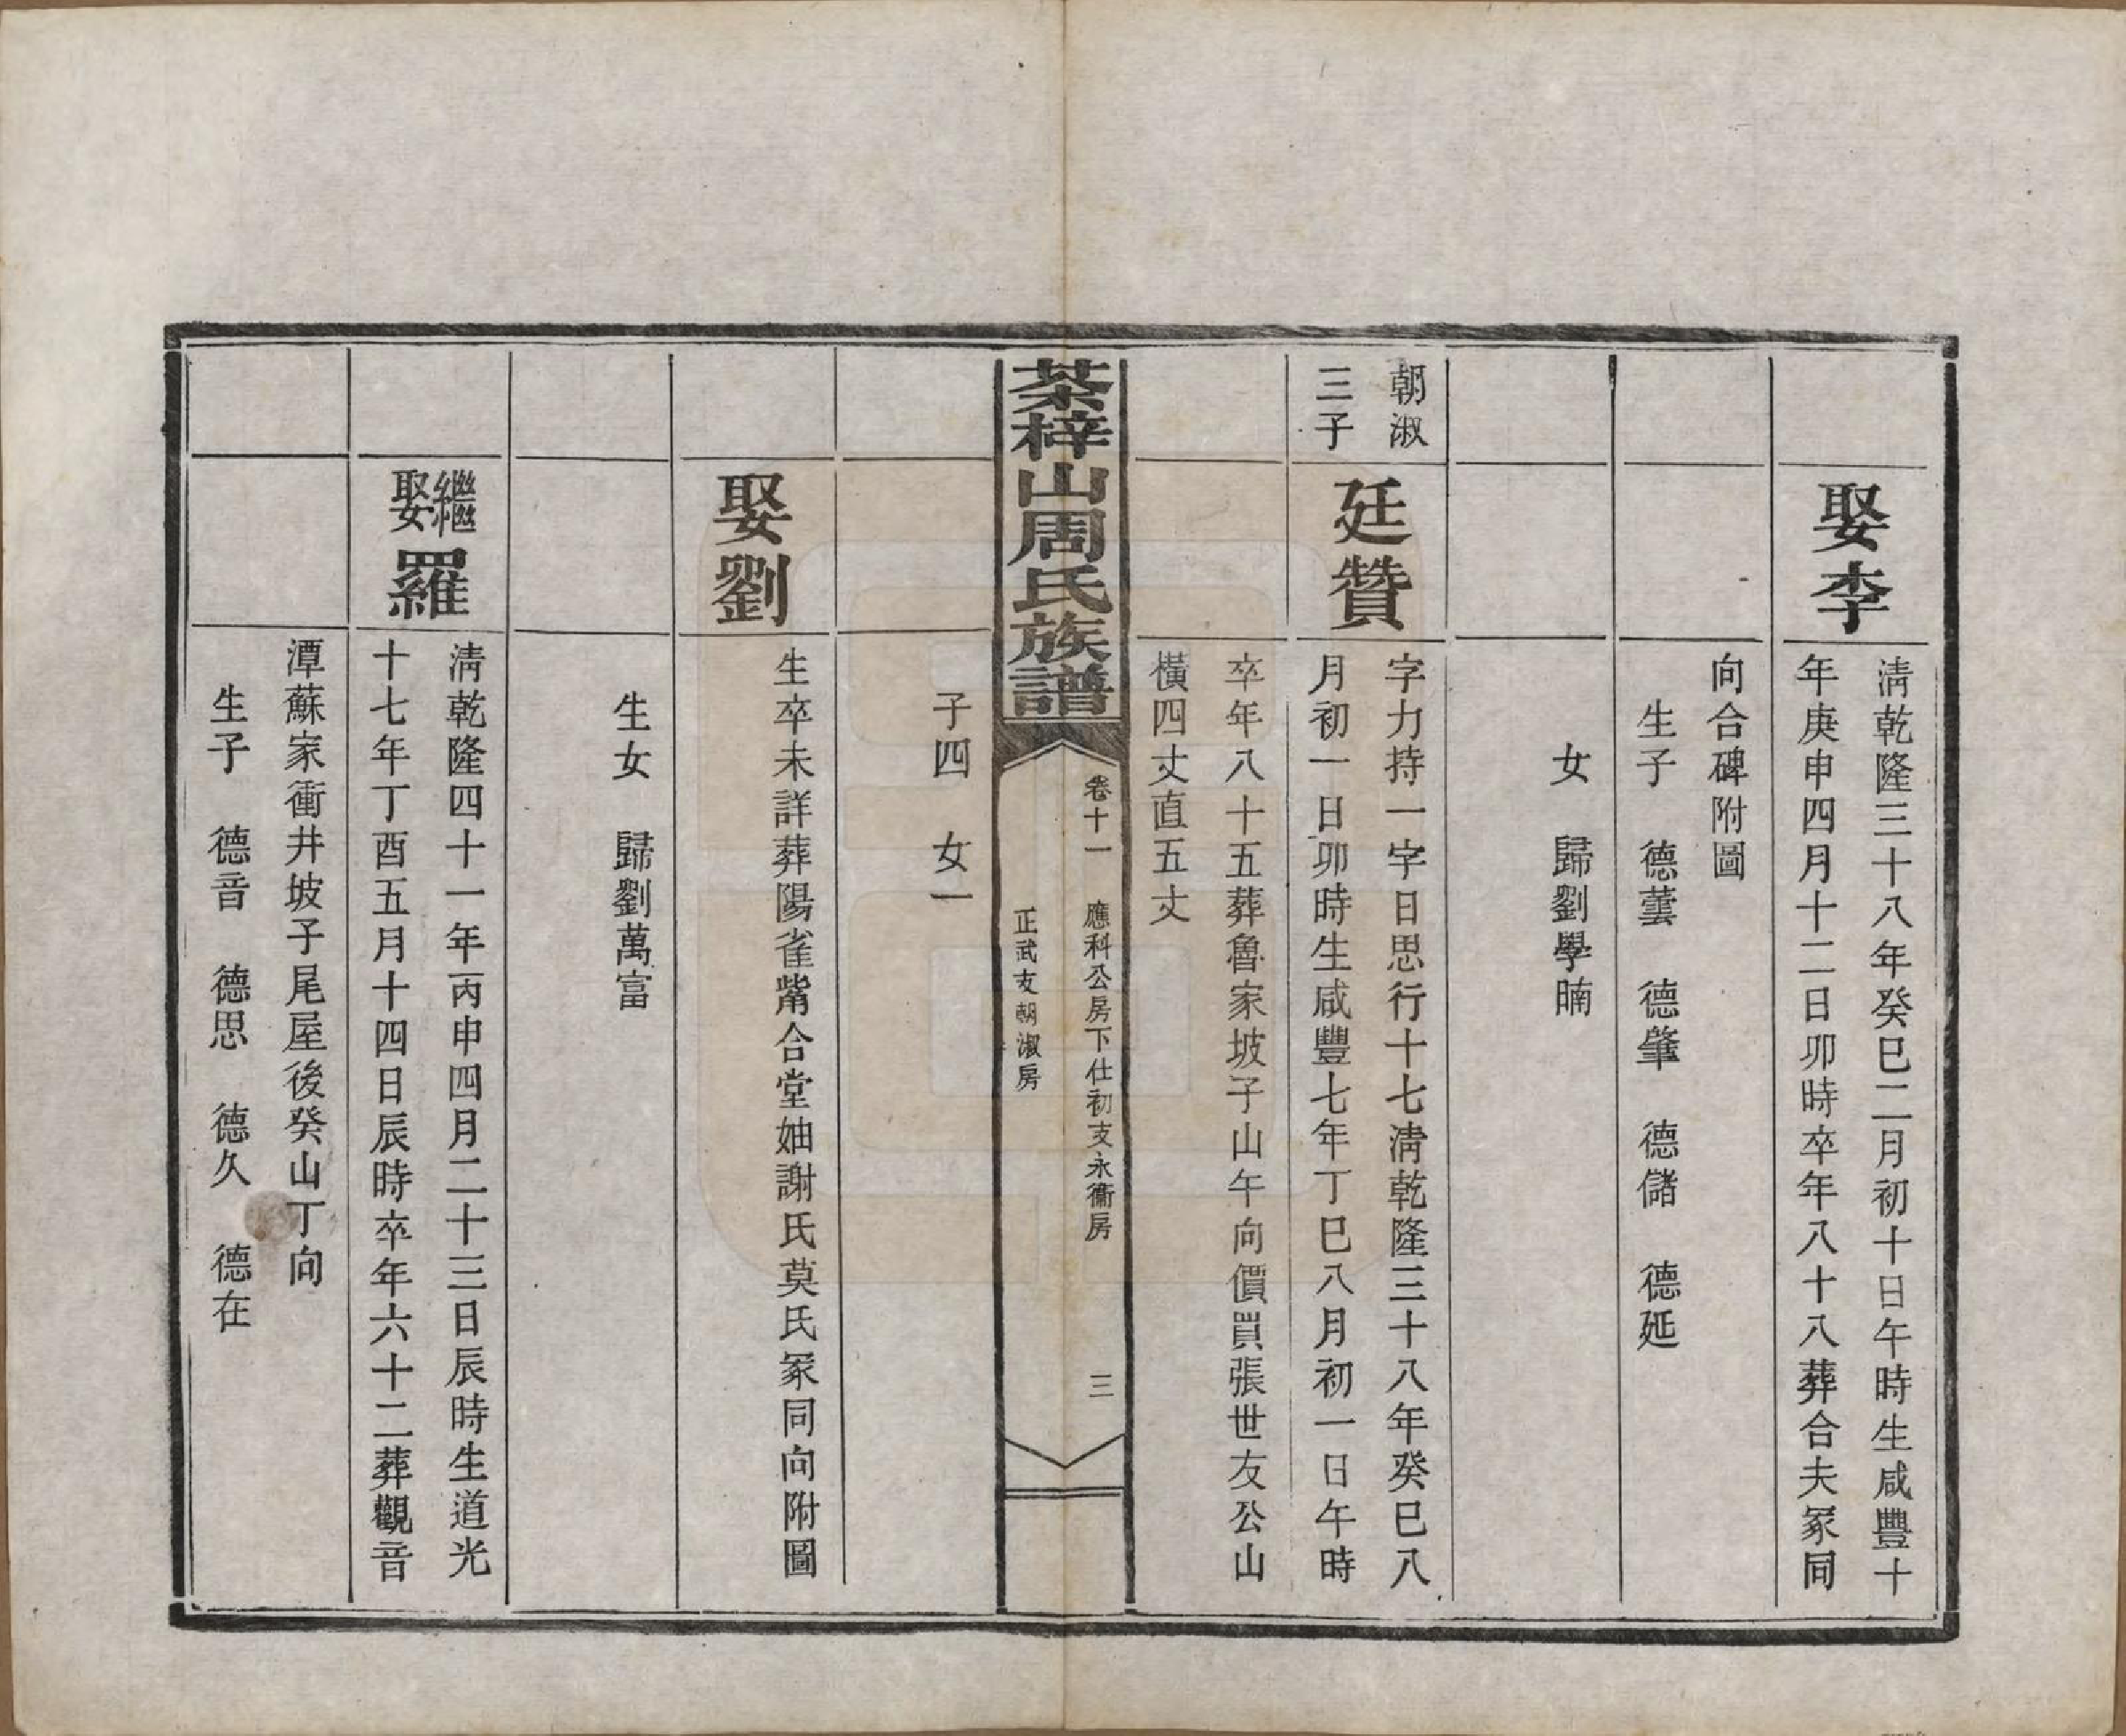 娶李
淸乾隆三十八年癸巳二月初十日午時生咸豐十
年庚申四月十二日卯時卒年八十八葬合夫冢同
向合碑附圖
生子　德蕓　德肇　德儲　德延
女　歸劉學㬳
朝淑
三子
廷贊
字力持一字日思行十七淸乾隆三十八年癸巳八
月初一日卯時生咸豐七年丁巳八月初一日午時
卒年八十五葬魯家坡子山午向價買張世友公山
橫四丈直五丈
茶梓山周氏族譜
卷十一　應科公房下仕初支永衢房
正武支朝淑房
三
子四　女一
娶劉
生卒未詳葬陽雀觜合堂妯謝氏莫氏冢同向附圖
生女　歸劉萬富
繼娶羅
淸乾隆四十一年丙申四月二十三日辰時生道光
十七年丁酉五月十四日辰時卒年六十二葬觀音
潭蘇家衝井坡子尾屋後癸山丁向
生子　德音　德思　德久　德在